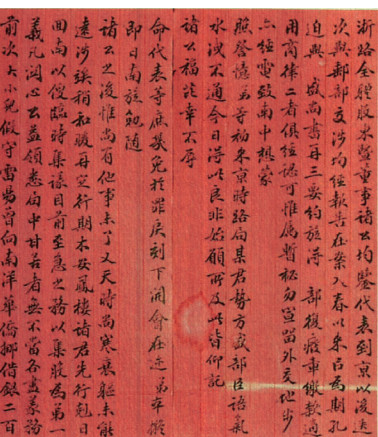 浙路全體股東暨董事諸公均鑒代表到京以後迭
次與郵部交涉均經報告在案入春以來占為期孔
迫與 盛尚書再三要約旋得 部復廢章繳款過
用商律二者俱經認可惟屬暫秘勿宣留外交地步
六經電致南中想蒙
燕詧憶弟等初來京時路局某君勢方盛部臣語氣
水洩不通今日得此良非始願所及此皆仰託
諸公福能幸不辱
命代表等庶幾免於罪戾刻下開會在迩弟本擬
即日南旋勉隨
諸公之後惟尚有他事未了又天時尚寒病軀未能
遠涉稍和暖再定行期本安鳳樓諸君先行剋日
回南以便臨時集議目前至急之務以集股為第一
義凡關心公益領悉局中甘苦者無不當各盡義務
前次大小兒假守雷易曾向南洋華僑挪借銀二百